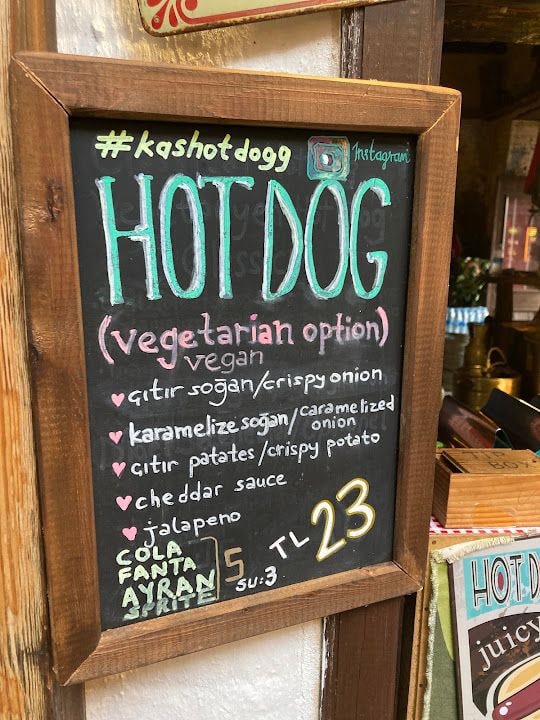 #kashotdogg
Instagram
HOT DOG
(vegetarian option)
vegan
çıtır soğan/crispy onion
karamelize soğan/caramelized
onion
çıtır patates/crispy potato
cheddar sauce
jalapeno
TL 23
COLA
FANTA
AYRAN
SPRITE
5
su:3
HOT D
juicy